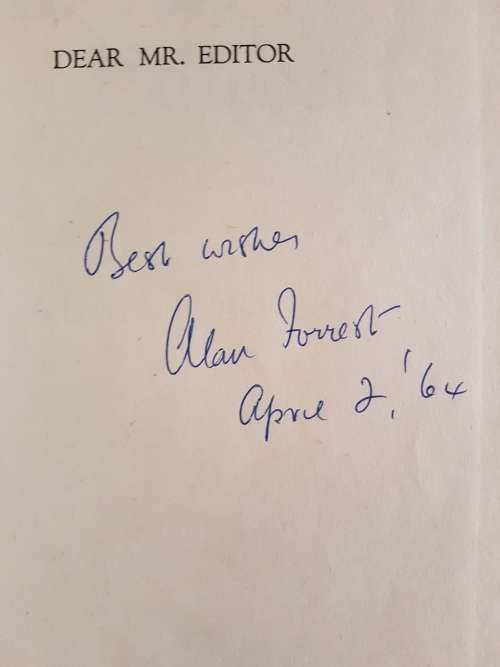 DEAR MR. EDITOR
Best wishes
Alan Forrest
April 2, '64